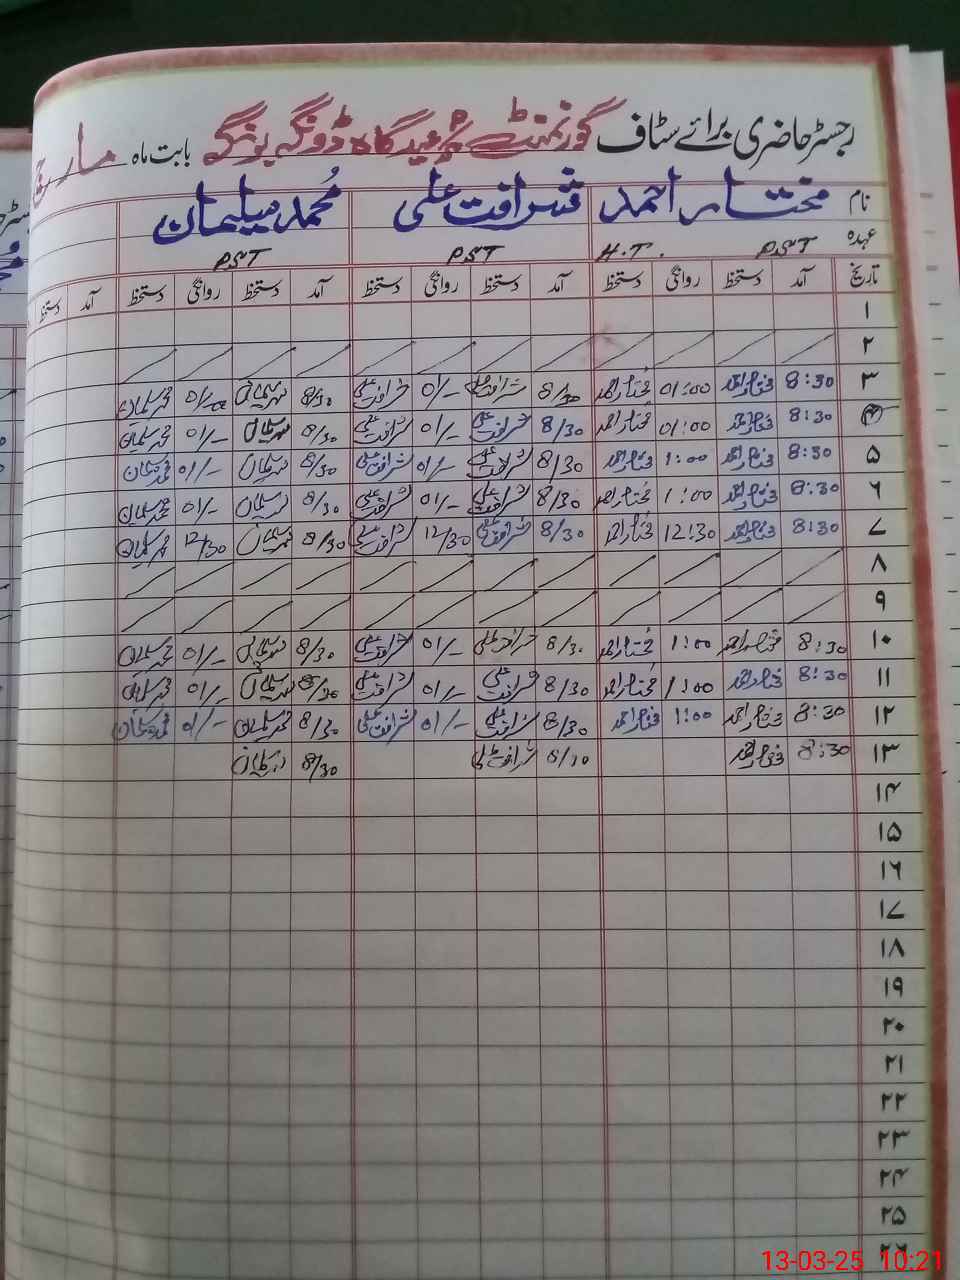 رجسٹر حاضری برائے سٹاف گورنمنٹ پرائمری گاہ ڈونگہ بونگہ بابت ماہ مارچ
نام مختار احمد شرافت علی محمد سلیمان
عہدہ PST H.T. PST PST
تاریخ آمد دستخظ روانگی دستخظ آمد دستخظ روانگی دستخظ آمد دستخظ روانگی دستخظ آمد دستخظ
۱
۲
۳ 8:30 مختار احمد 01:00 مختار احمد 8/30 شرافت علی 01/- شرافت علی 8/30 محمد سلیمان 01/- محمد سلیمان
۴ 8:30 مختار احمد 01:00 مختار احمد 8/30 شرافت علی 01/- شرافت علی 8/30 محمد سلیمان 01/- محمد سلیمان
۵ 8:30 مختار احمد 1:00 مختار احمد 8/30 شرافت علی 01/- شرافت علی 8/30 محمد سلیمان 01/- محمد سلیمان
۶ 8:30 مختار احمد 1:00 مختار احمد 8/30 شرافت علی 01/- شرافت علی 8/30 محمد سلیمان 01/- محمد سلیمان
۷ 8:30 مختار احمد 12:30 مختار احمد 8/30 شرافت علی 12/30 شرافت علی 8/30 محمد سلیمان 12/30 محمد سلیمان
۸
۹
۱۰ 8:30 مختار احمد 1:00 مختار احمد 8/30 شرافت علی 01/- شرافت علی 8/30 محمد سلیمان 01/- محمد سلیمان
۱۱ 8:30 مختار احمد 1:00 مختار احمد 8/30 شرافت علی 01/- شرافت علی 8/30 محمد سلیمان 01/- محمد سلیمان
۱۲ 8:30 مختار احمد 1:00 مختار احمد 8/30 شرافت علی 01/- شرافت علی 8/30 محمد سلیمان 01/- محمد سلیمان
۱۳ 8:30 مختار احمد 8/30 شرافت علی 8/30 محمد سلیمان
۱۴
۱۵
۱۶
۱۷
۱۸
۱۹
۲۰
۲۱
۲۲
۲۳
۲۴
۲۵
۲۶
13-03-25 10:21